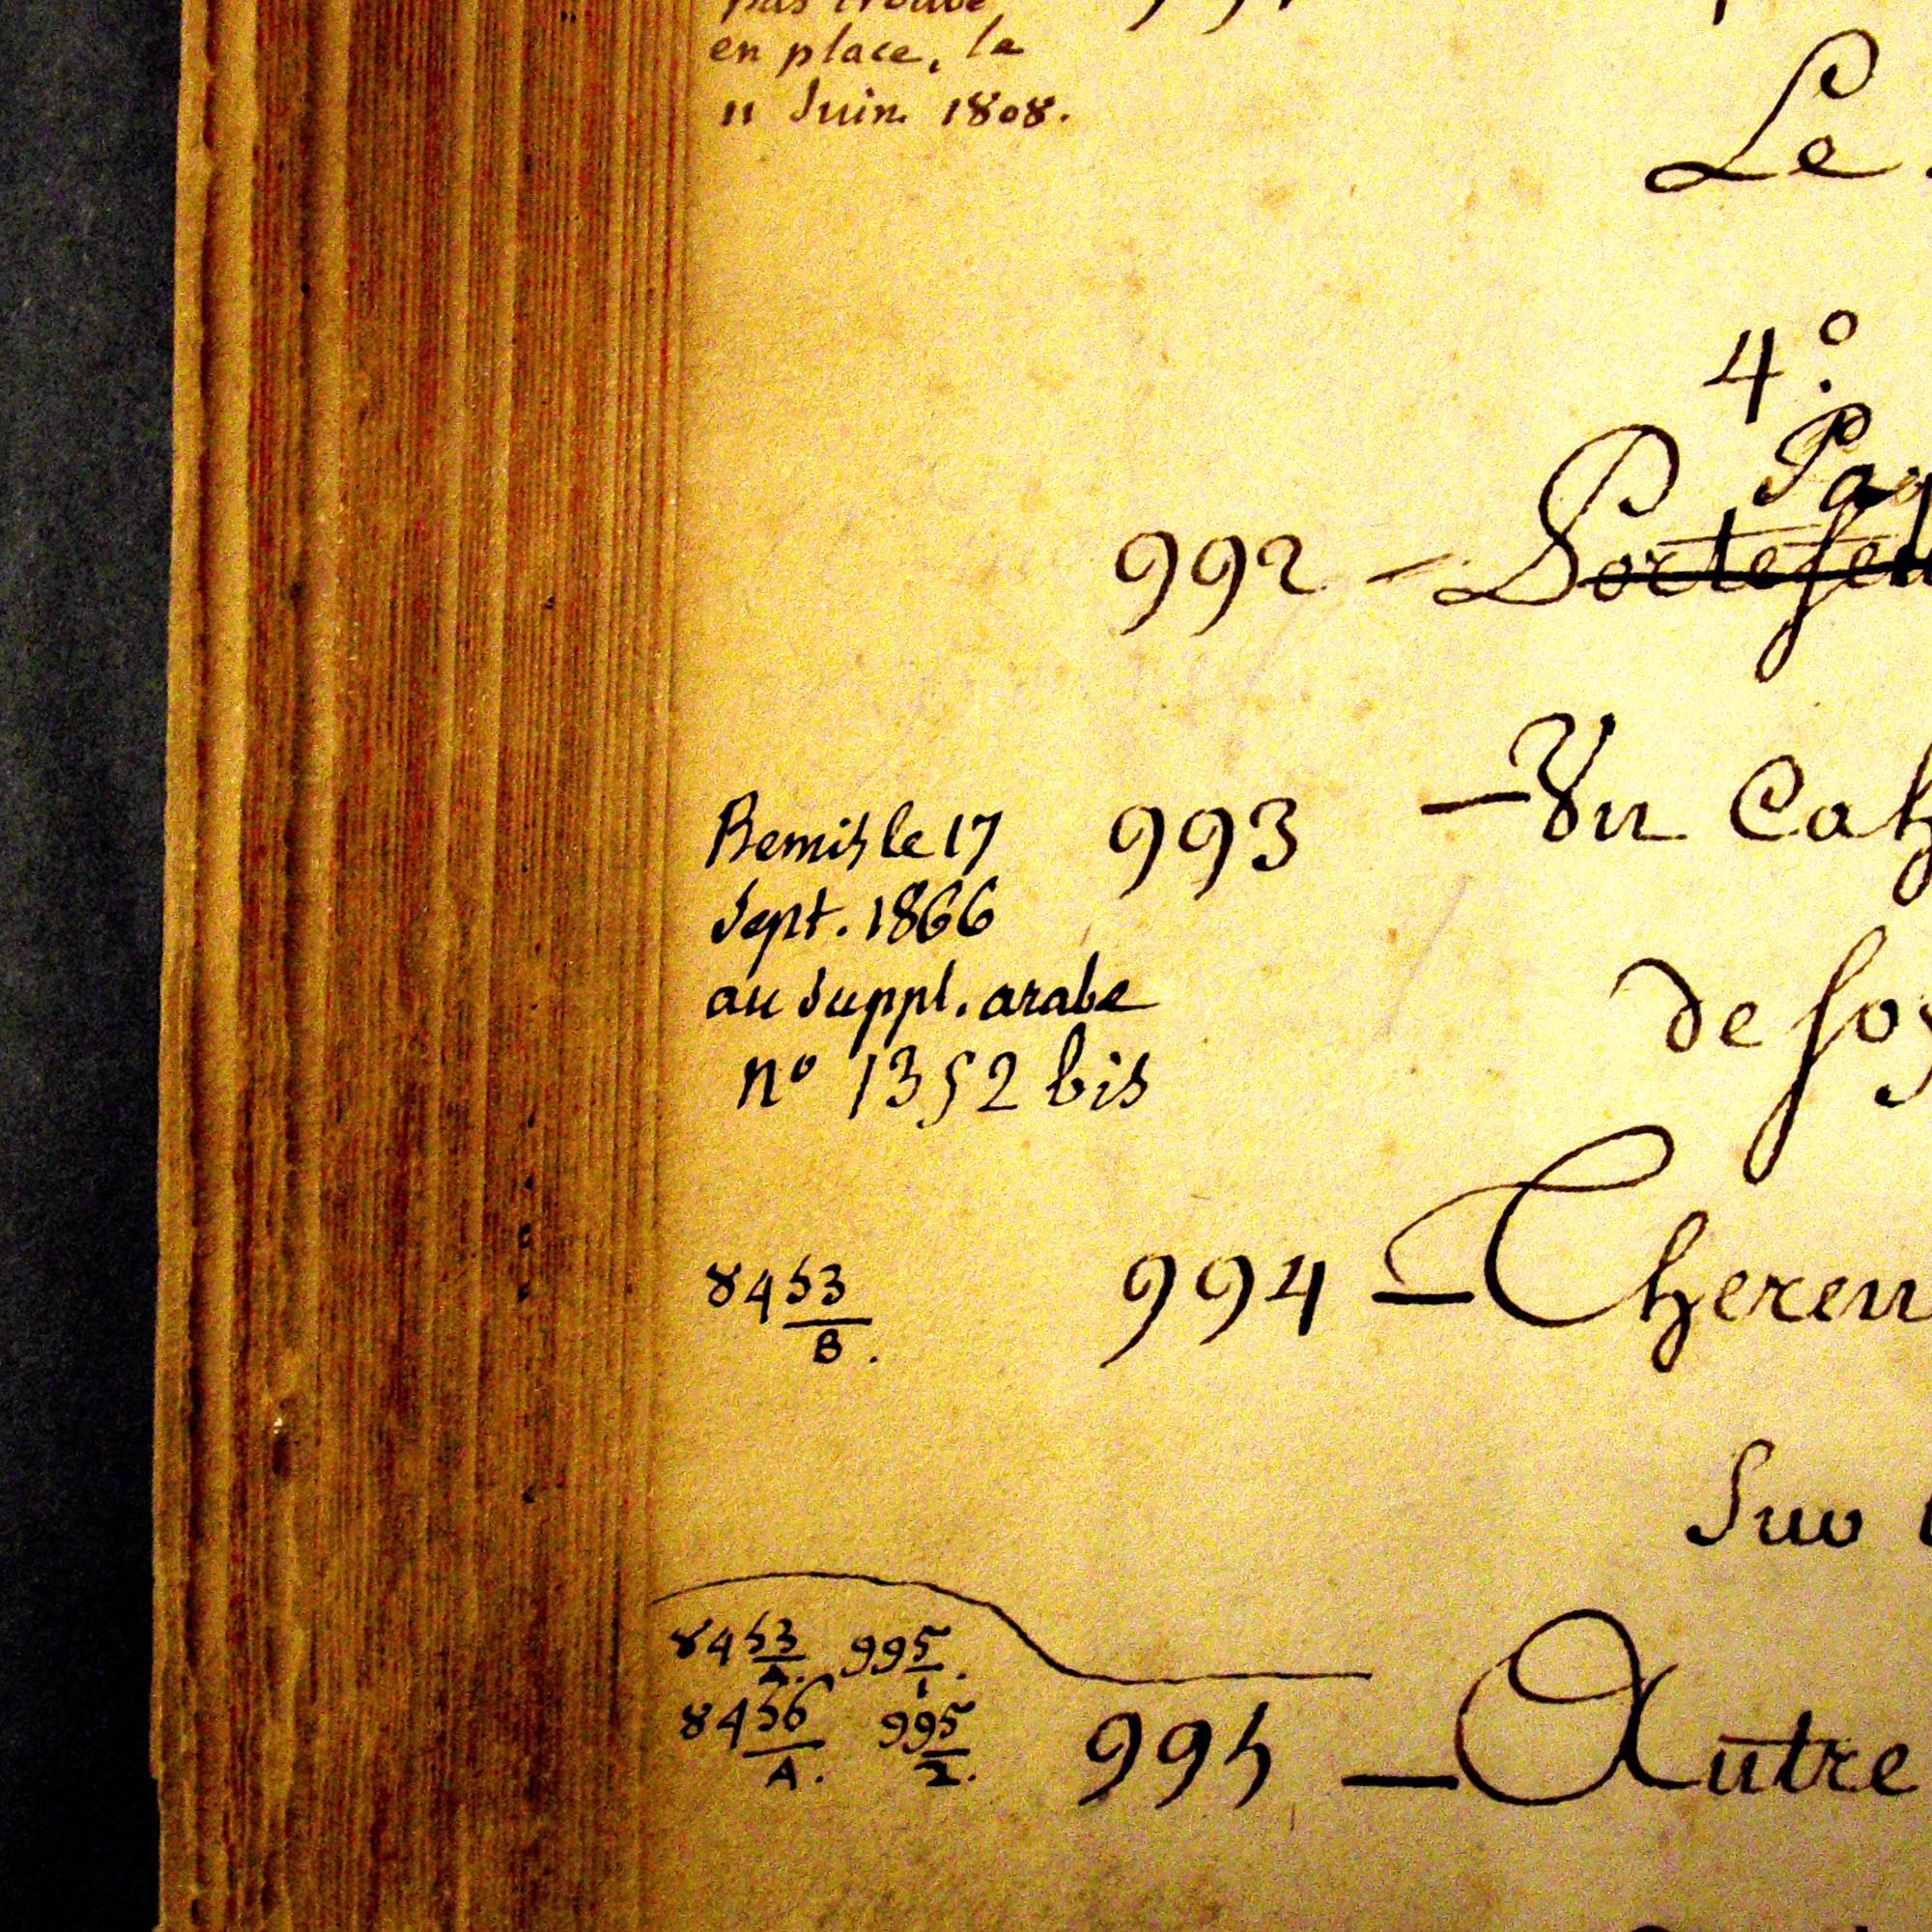 pas trouvé
en place, le
11 Juin 1808.
Le
4.º
Paq
992 - Portefeu
Remis le 17
Sept. 1866
au Suppl. arabe
nº 1352 bis
993 - Un Cah
de so
8453
B.
994 - Theren
Sur
8453 995
A. 1.
8456 995
A. 2.
995 - Autre